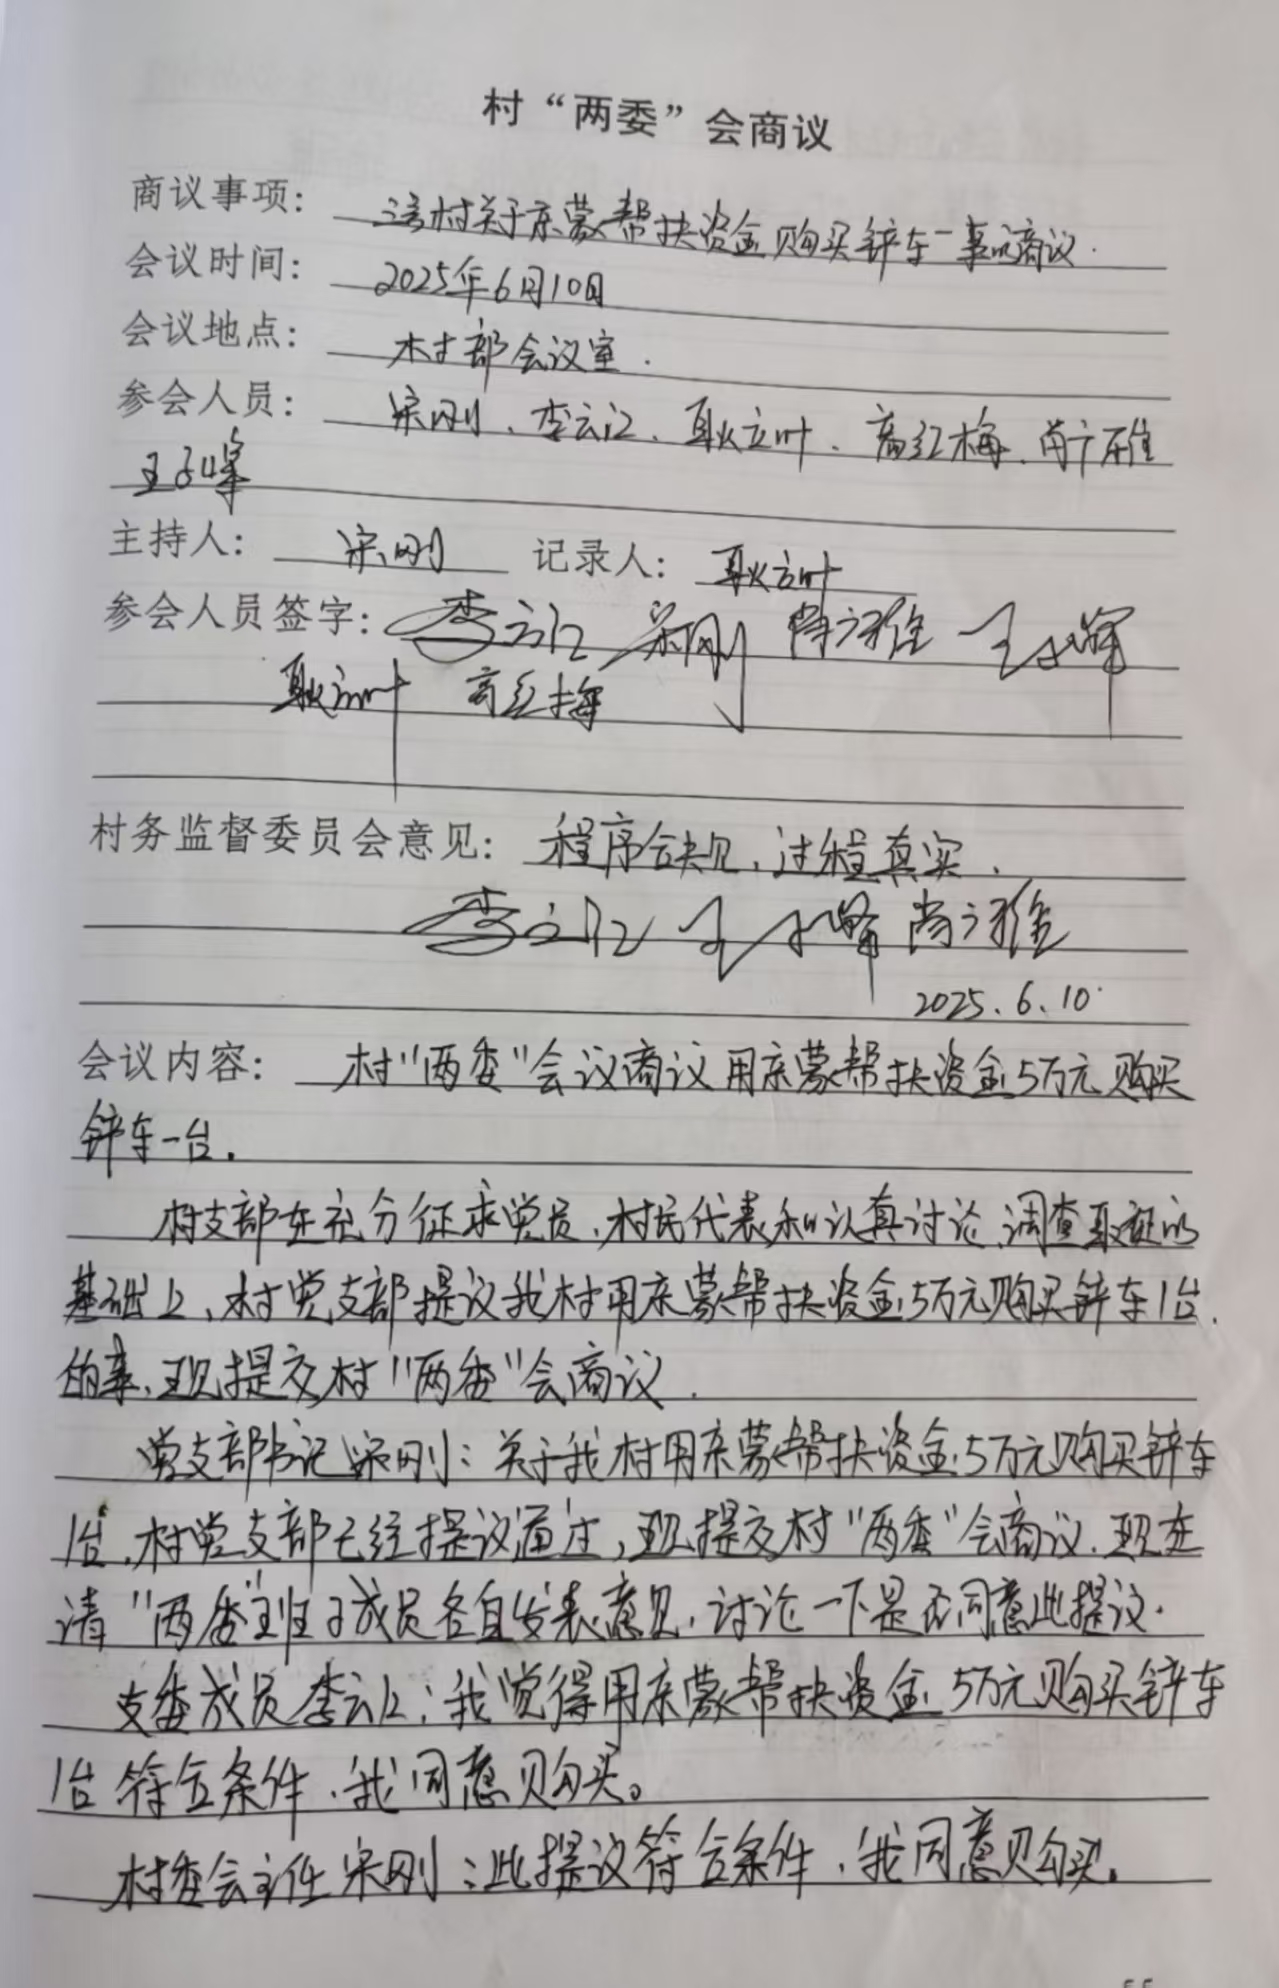 村“两委”会商议
商议事项：湾村关于京蒙帮扶资金购买铲车一事的商议.
会议时间：2025年6月10日
会议地点：村部会议室.
参会人员：宋刚、李云江、耿立叶、高红梅、尚广雅
王子峰
主持人：宋刚 记录人：耿立叶
参会人员签字：李云江 宋刚 尚广雅 王子峰
耿立叶 高红梅
村务监督委员会意见：程序合规，过程真实.
李云江 王子峰 尚广雅
2025.6.10.
会议内容：村“两委”会议商议用京蒙帮扶资金5万元购买
铲车一台.
村支部在充分征求党员、村民代表和认真讨论、调查取证的
基础上，村党支部提议我村用京蒙帮扶资金5万元购买铲车1台.
的事，现提交村“两委”会商议.
党支部书记宋刚：关于我村用京蒙帮扶资金5万元购买铲车
1台，村党支部已经提议通过，现提交村“两委”会商议.现在
请“两委”班子成员各自发表意见，讨论一下是否同意此提议.
支委成员李云江：我觉得用京蒙帮扶资金5万元购买铲车
1台符合条件，我同意购买。
村委会主任宋刚：此提议符合条件，我同意购买。